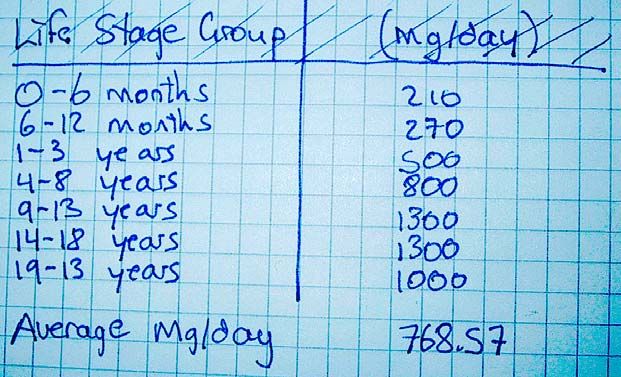 Life Stage Group (mg/day)
0-6 months 210
6-12 months 270
1-3 years 500
4-8 years 800
9-13 years 1300
14-18 years 1300
19-13 years 1000
Average Mg/day 768.57